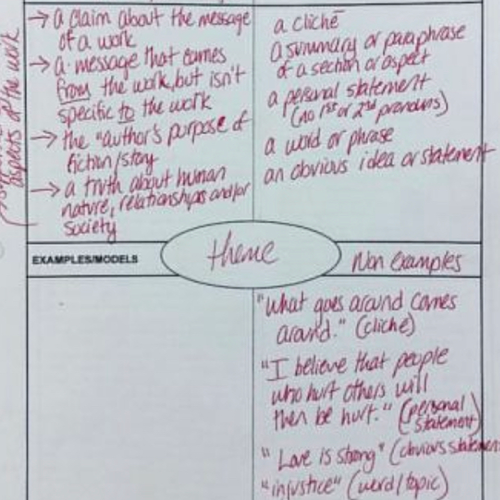 → a claim about the message
of a work
→ a message that comes
from the work, but isn't
specific to the work
→ the "author's purpose of
fiction/story
→ a truth about human
nature, relationships and/or
society
aspects of the work
a cliché
a summary or paraphrase
of a section or aspect
a personal statement
(no 1st or 2nd pronouns)
a word or phrase
an obvious idea or statement
theme
EXAMPLES/MODELS
Non examples
"What goes around comes
around." (cliché)
"I believe that people
who hurt others will
then be hurt." (personal
statement)
"Love is strong" (obvious statement
"injustice" (word/topic)